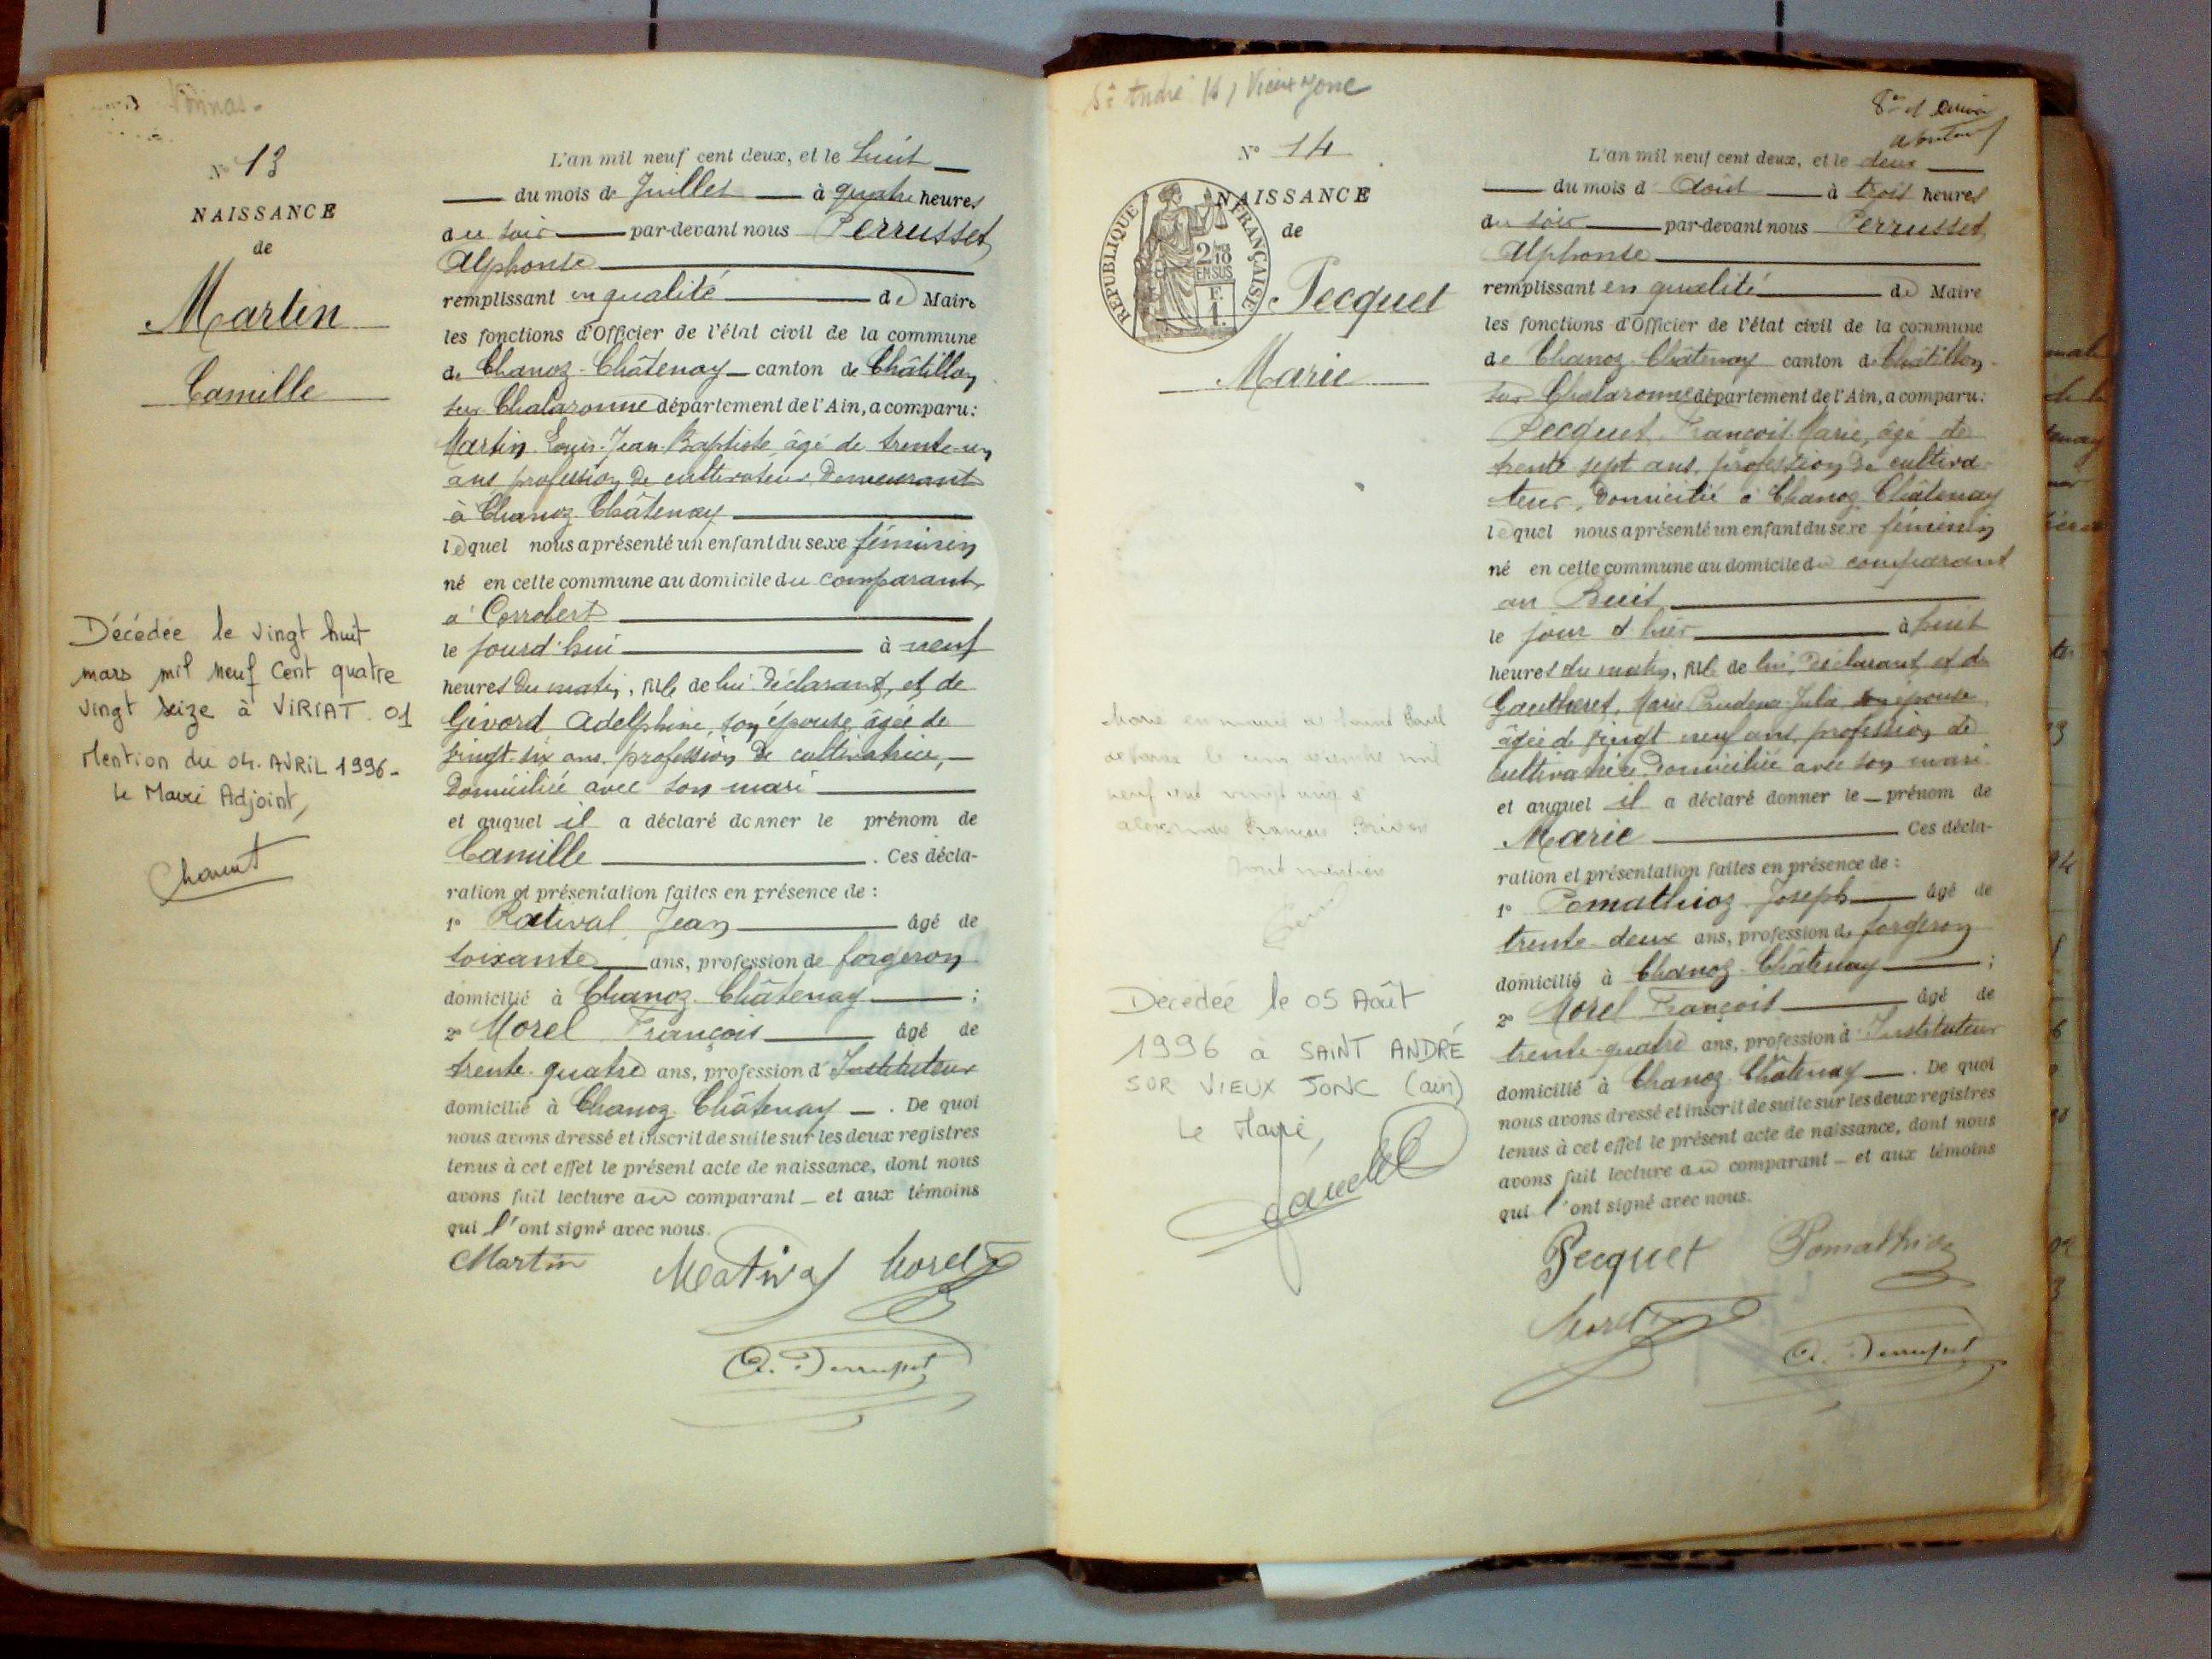 Vonnas.
N° 13
NAISSANCE
de
Martin
Camille
Décédée le vingt huit
mars mil neuf cent quatre
vingt seize à VIRIAT. 01
Mention du 04. AVRIL 1996-
Le Maire Adjoint,
L'an mil neuf cent deux, et le huit
du mois de Juillet à quatre heures
du soir par-devant nous Perrusset
Alphonse
remplissant en qualité de Maire
les fonctions d'Officier de l'état civil de la commune
de Chanoz-Châtenay canton de Châtillon
sur Chalaronne département de l'Ain, a comparu:
Martin Louis Jean-Baptiste âgé de trente-un
ans profession de cultivateur demeurant
à Chanoz Châtenay
lequel nous a présenté un enfant du sexe féminin
né en cette commune au domicile du comparant
à Corrobert
le jourd'hui à neuf
heures du matin, fille de lui déclarant, et de
Givord Adelphine, son épouse, âgée de
vingt-six ans, profession de cultivatrice,
domiciliée avec son mari
et auquel il a déclaré donner le prénom de
Camille. Ces décla-
ration et présentation faites en présence de :
1° Matival Jean âgé de
soixante ans, profession de forgeron
domicilié à Chanoz-Châtenay ;
2° Morel François âgé de
trente-quatre ans, profession d'Instituteur
domicilié à Chanoz-Châtenay. De quoi
nous avons dressé et inscrit de suite sur les deux registres
tenus à cet effet le présent acte de naissance, dont nous
avons fait lecture au comparant et aux témoins
qui l'ont signé avec nous.
Martin Mativaf Morel
A. Perrusset
St André s/ Vieux Jonc
N° 14
NAISSANCE
de
RÉPUBLIQUE FRANÇAISE
2/10 EN SUS
F. 1.
Pecquet
Marie
Décédée le 05 Août
1996 à SAINT ANDRÉ
SUR VIEUX JONC (ain)
Le Maire,
L'an mil neuf cent deux, et le deux
du mois d'Août à trois heures
du soir par-devant nous Perrusset
Alphonse
remplissant en qualité de Maire
les fonctions d'Officier de l'état civil de la commune
de Chanoz-Châtenay canton de Châtillon-
sur Chalaronne département de l'Ain, a comparu:
Pecquet François-Marie, âgé de
trente sept ans, profession de cultiva-
teur, domicilié à Chanoz-Châtenay
lequel nous a présenté un enfant du sexe féminin
né en cette commune au domicile du comparant
au Buit
le jour d'hier à huit
heures du matin, fille de lui déclarant et de
Gautheret, Marie Julia son épouse,
âgée de vingt neuf ans, profession de
cultivatrice domiciliée avec son mari
et auquel il a déclaré donner le prénom de
Marie Ces décla-
ration et présentation faites en présence de :
1° Pomathioz Joseph âgé de
trente-deux ans, profession de forgeron
domicilié à Chanoz-Châtenay ;
2° Morel François âgé de
trente-quatre ans, profession d'Instituteur
domicilié à Chanoz Châtenay. De quoi
nous avons dressé et inscrit de suite sur les deux registres
tenus à cet effet le présent acte de naissance, dont nous
avons fait lecture au comparant et aux témoins
qui l'ont signé avec nous.
Pecquet Pomathioz
Morel A. Perrusset